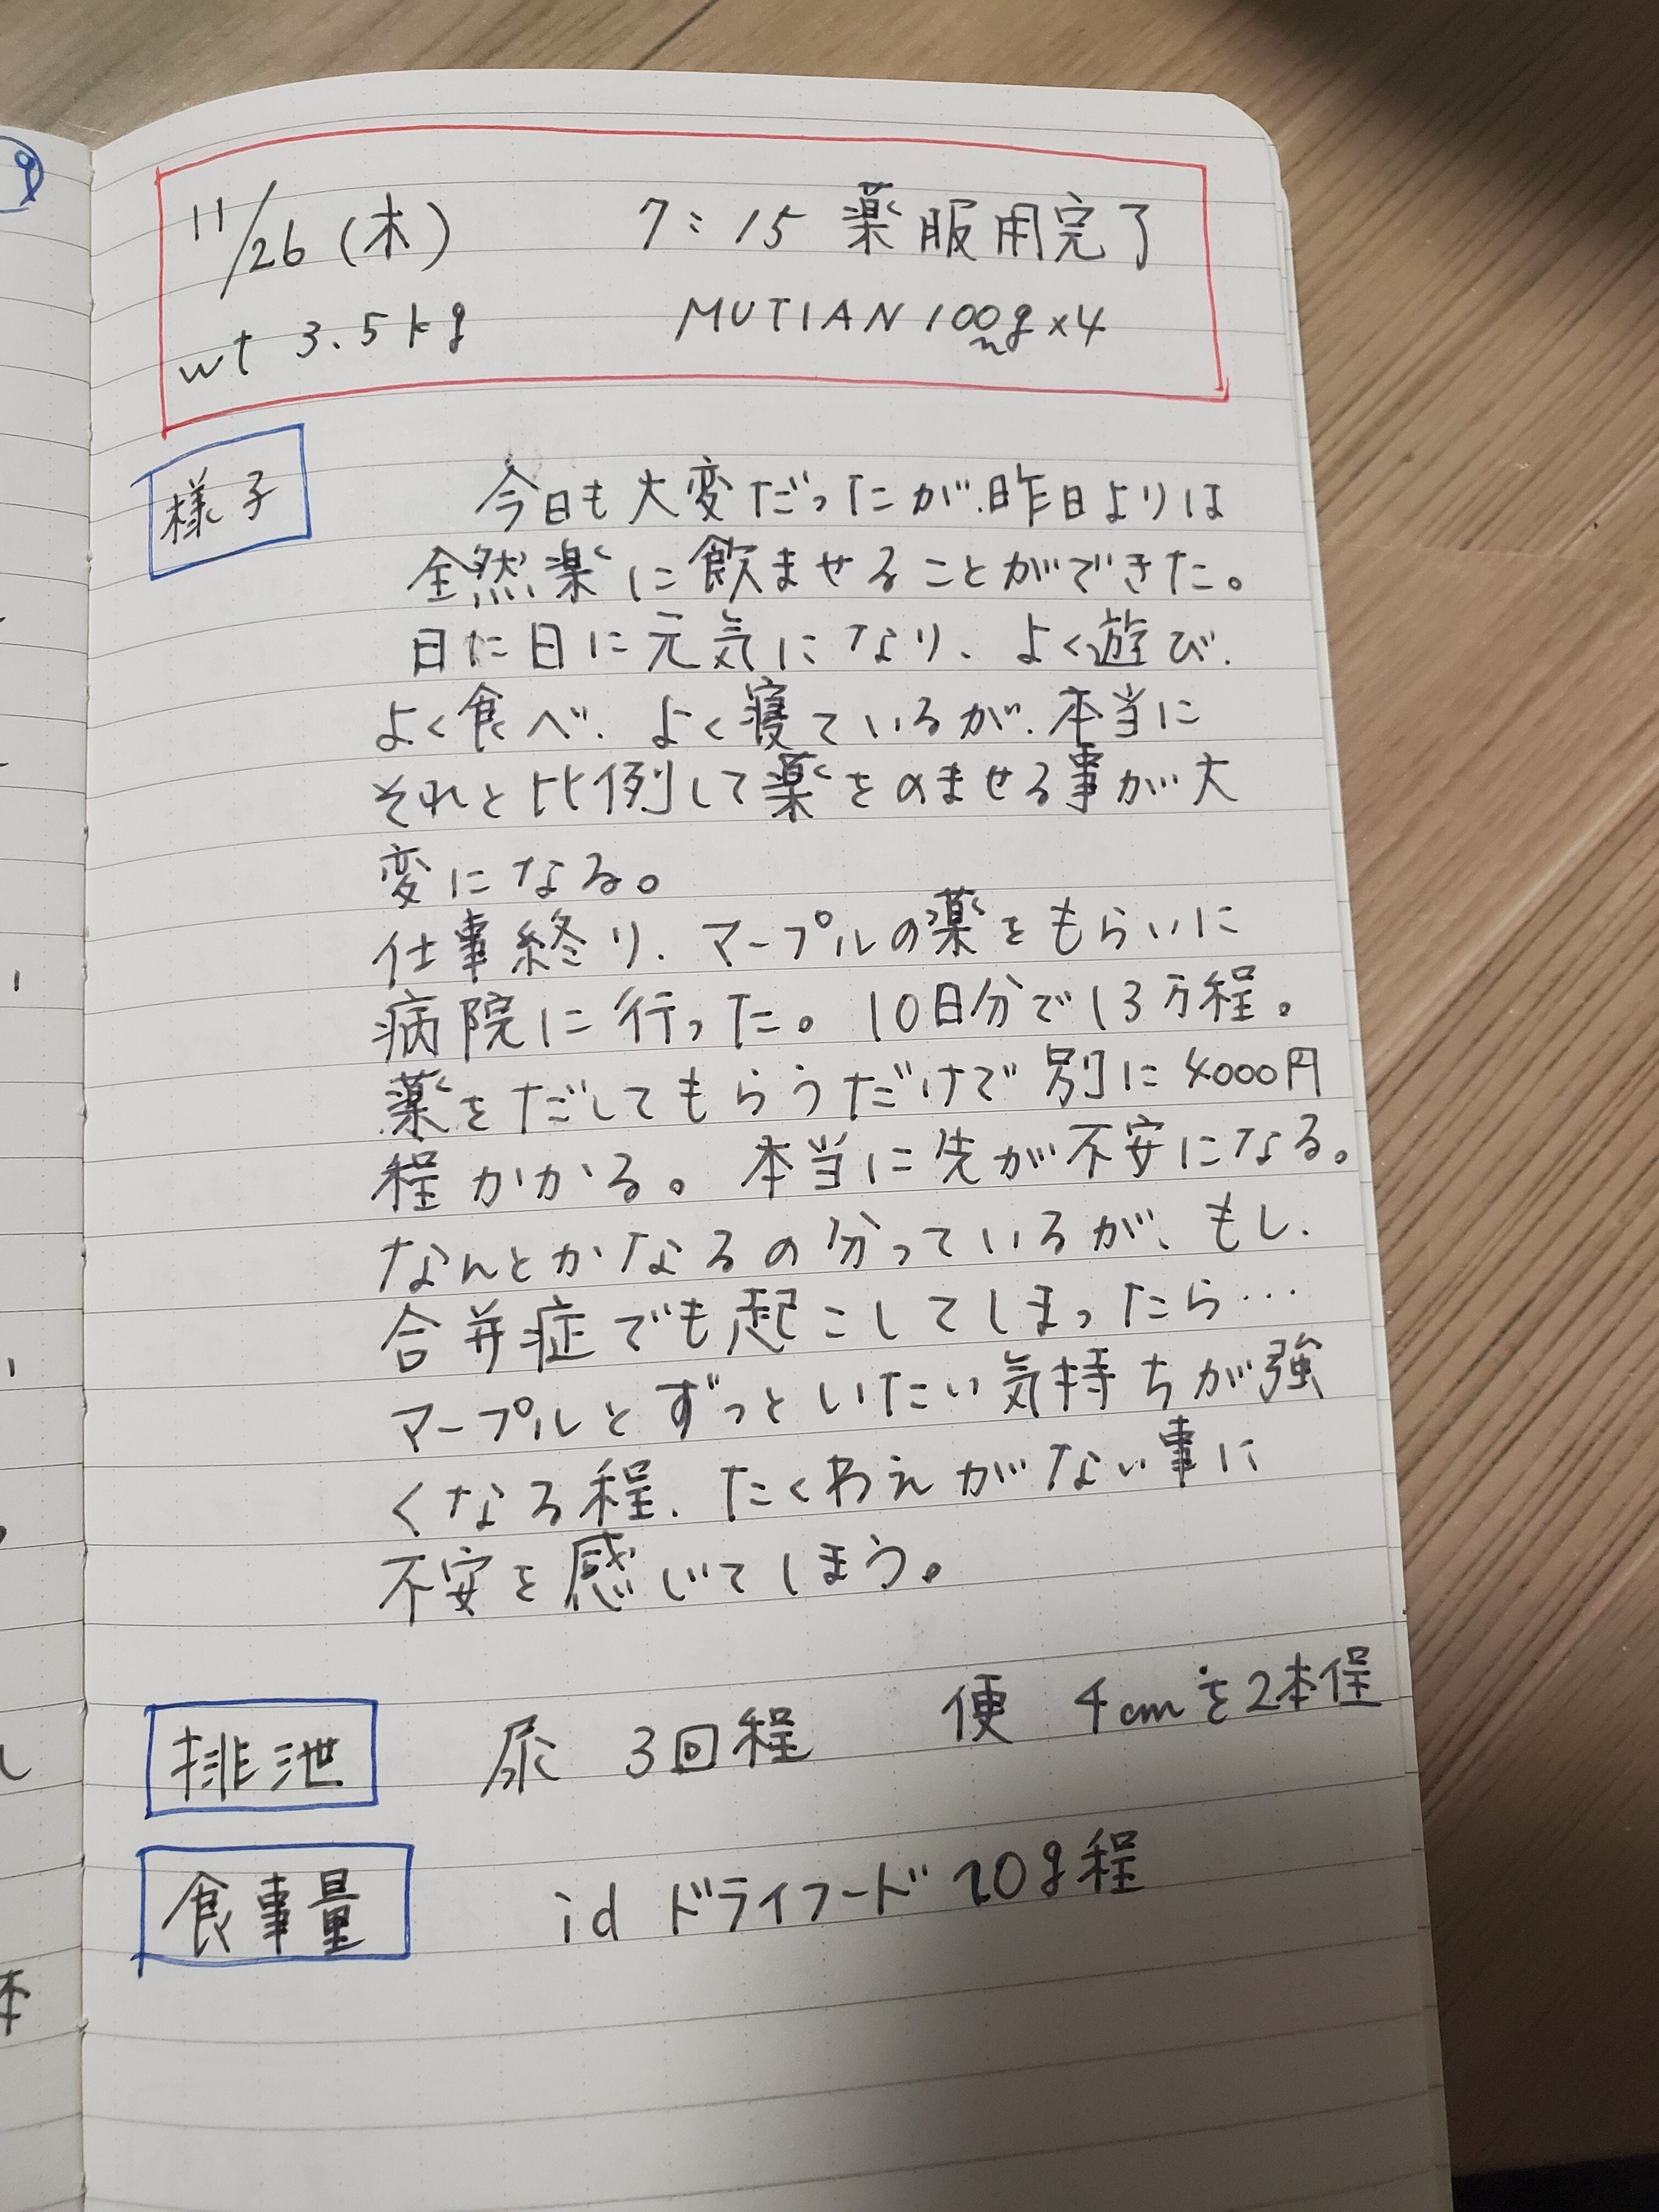 11/26(木) 7:15 薬服用完了
wt 3.5kg MUTIAN 100g×4
様子
今日も大変だったが、昨日よりは
全然楽に飲ませることができた。
日に日に元気になり、よく遊び、
よく食べ、よく寝ているが、本当に
それと比例して薬をのませる事が大
変になる。
仕事終り、マープルの薬をもらいに
病院に行った。10日分で13万程。
薬をだしてもらうだけで別に4000円
程かかる。本当に先が不安になる。
なんとかなるの分っているが、もし、
合併症でも起こしてしまったら…
マープルとずっといたい気持ちが強
くなる程、たくわえがない事に
不安を感じてしまう。
排泄 尿 3回程 便 4cmを2本程
食事量 id ドライフード 20g程